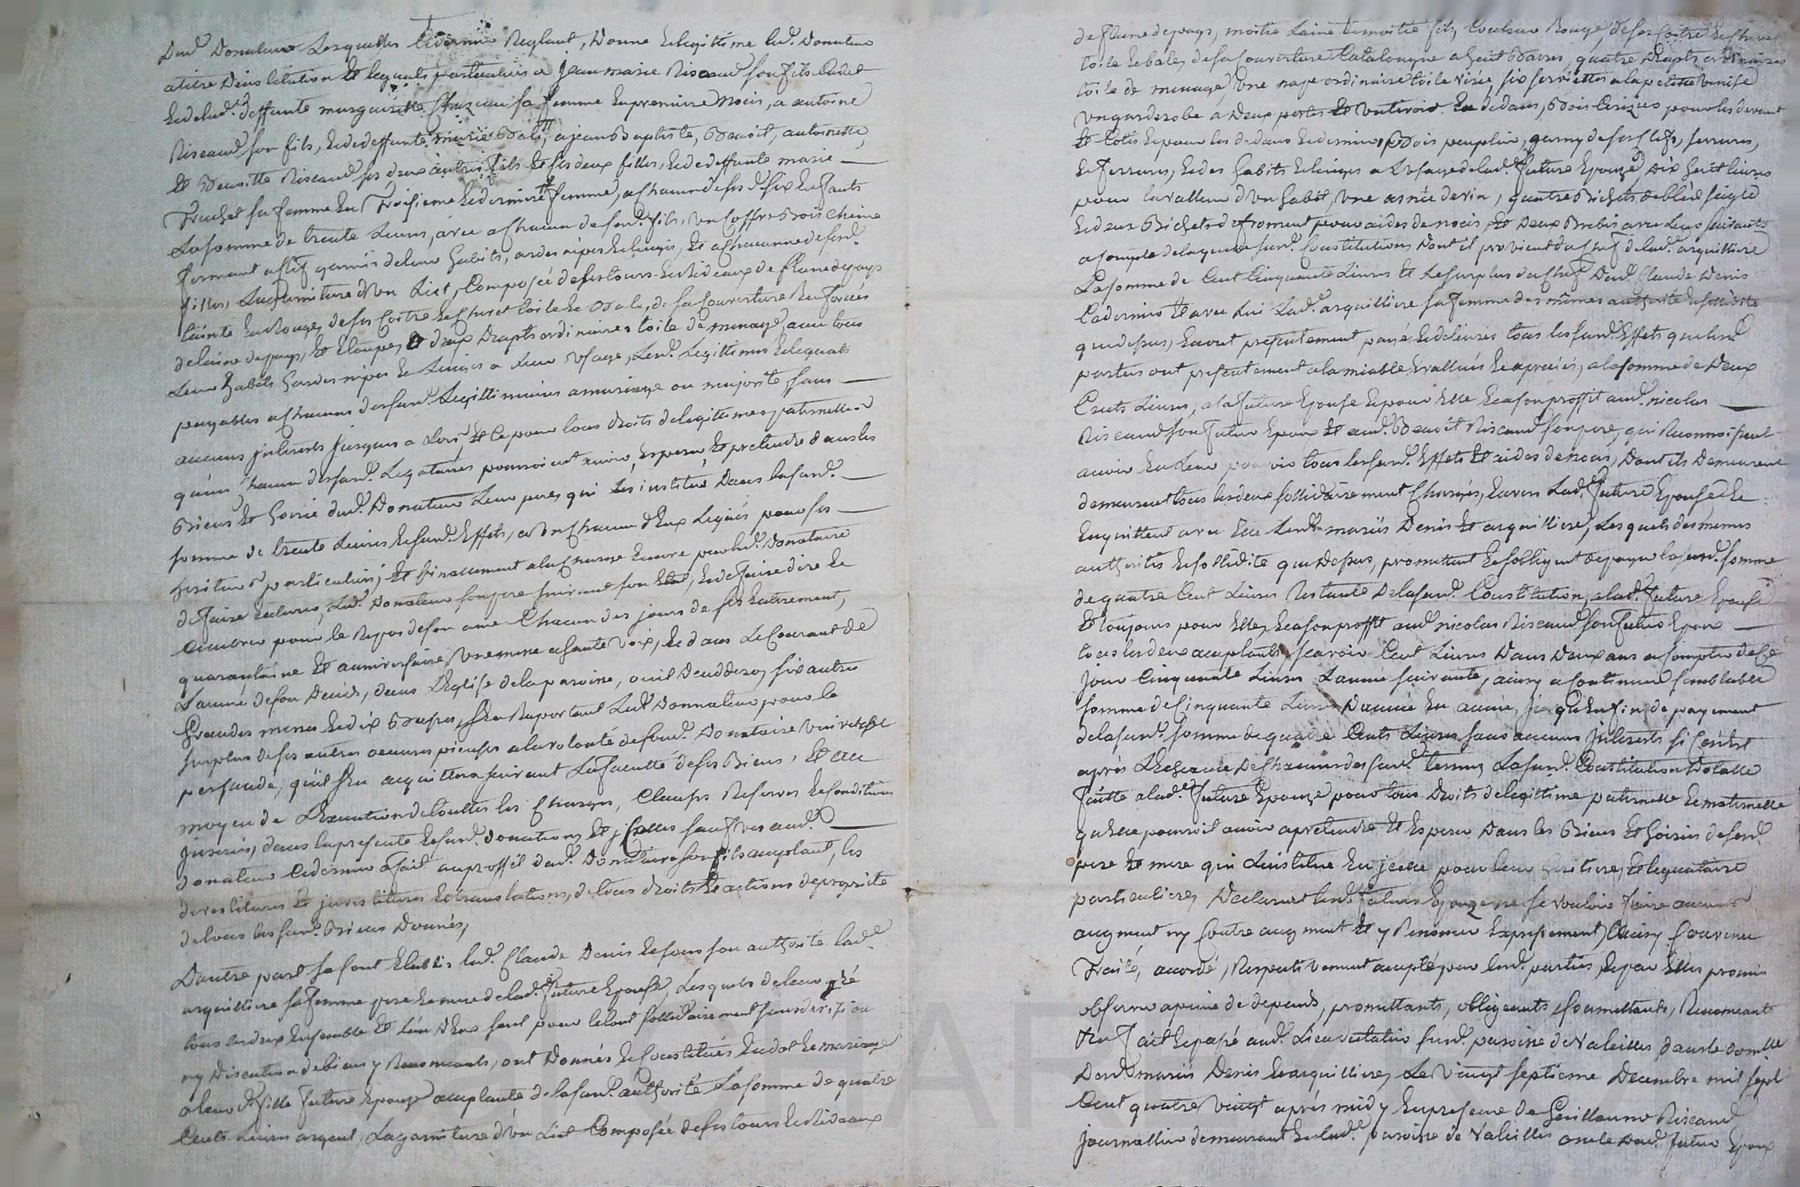 Dud. Donateur Lesquelles Cedernier Reglant, Donne Elegittime lud. Donateur
atitre Dinstitution Et leguats particuliers a Jean marie Riscaud son fils Cadet
Et delad. deffunte margueritte sa femme En premiere Nois, a antoine
Riscaud son fils, Et de deffunte marie a jean Baptiste, Benoit, antoinette,
Et Benoitte Riscaud ses deux autres fils Et ses deux filles, Et de deffunte marie
sa femme En Troisieme Et derniere femme, a Chacun de ses d. six Enfants
La somme de trente Livres, avec a Chacun de sesd. fils, un Coffre Bois Chene
fermant a Clef garnis de leur habits, ardes nipes Et linges, Et a Chacune de sesd.
filles, La garniture d'un Lict, Composée de ses tours Et Rideaux de flaine depays
tainte En Rouge, de ses Coitre Et Chevet toile Et Bale, de sa Couverture
de laine depays, Et deux Drapts ordinaires toile de menage, avec tous
Leur habits hardes nipes Et Linges a Leur Usage, Lesd. Legittimes Et leguats
payables a Chacun dessusd. Legittimaires a mariage ou majorité, sans
aucuns jnterests jusques a Lors Et Ce pour tous droits de legitimes paternelle
qu'un Chacun dessusd. Legataires pourroient avoir, Esperer Et pretendre dans les
Biens Et hoirie dud. Donateur Leur pere, qui Les institué Dans lasusd.
somme de trente Livres Et susd. Effets, Chacun d'Eux Legués pour ses
heritiers particuliers, Et finallement alacharge Encore par led. Donataire
de faire Enterrer, Lud. Donateur son pere suivant son Etat, Et de faire dire Et
Celebrer pour le Repos de son ame Chacun des jours de ses Enterrement,
quarantaine Et anniversaire, Une messe a haute Voix, Et dans Le Courant de
L'année de son Deceds, dans L'Eglise de la paroisse, ou il Deceddera, six autres
Grandes messes Et dix Basses, s'En Raportant Lud. Donnateur pour le
surplus de ses autres oeuvres pieuses ala volonté de sond. Donataire Universel
persuadé, qu'il s'En acquittera suivant La faculté de ses Biens, Et au
moyen de L'Execution de touttes les Charges, Clauses Reserves Et Conditions
jnserées, dans la presente Et susd. donations Et jcelles sauf Ves aud.
donateur Cedernier a fait au proffit dud. Donataire son fils acceptant, les
devestitures Et jnvestitures Et translations, de tous droits Et actions de proprieté
de tous les susd. Biens Donnés,
D'autre part se sont Etablis led. Claude Denis Et sous son authorité lad.
arquilliere sa femme pere Et mere de lad. future Epouse, Lesquels de leur gré
tous les deux Ensemble Et L'un D'Eux seul pour le tout sollidairement sans division
ny Discution de biens y Renonceants, ont Donnés Et Constitués En dot Et mariage
a leur d. fille future Epouse acceptante de la sud. authorité La somme de quatre
Cents Livres argent, La garniture d'un Lict Composée de ses tours Et Rideaux
de flaine depays, moitié Laine Et moitié fil, Couleur Rouge, de ses Coitre Et Chevet
toile Et bale, de sa Couverture Catalougne a huit Barres, quatre Drapts ordinaires
toile de menage, Une nape ordinaire toile Visée, six serviettes a la petite Venise
Un garderobe a Deux portes Et Untiroir En dedans, Bois Cerizier pour les devant
Et Cotés Et pour les dedans Et dernier Bois peuplier, garny de ses Clefs, serrures,
Et ferrures, Et des habits Et linges a L'usage de lad. future Epouse, Dix huit Livres
pour la valleur d'un habit, Une asnée de vin, quatre Bichets de bled seigle
Et deux Bichets de froment pour aides de nois, Et Deux Brebis avec Leurs suivants
a Compte de laquelle susd. Constitution Dont il provient du Chef de lad. arquilliere
La somme de Cent Cinquante Livres Et Le surplus du Chef Dud. Claude Denis
Cedernier Et avec Lui Lad. arquilliere sa femme des mêmes authorité Et sollidité
que dessus, En ont presentement payé Et delivrés tous les susd. Effets que lesd.
parties ont presentement a lamiable Evallués Et apreciés, a la somme de Deux
Cents Livres, a la future Epouse Et pour Elle Et a son proffit aud. nicolas
Riscaud son futur Epoux Et aud. Benoit Riscaud son pere, qui Reconnoissent
avoir En Leur pouvoir tous les susd. Effets Et aides de nois, Dont ils Demeurent
demeurent tous les deux sollidairement Chargés, Envers Lad. future Epouse, Et
En quittent avec Elle Lesd. mariés Denis Et arquilliere, Lesquels des memes
authorités Et sollidité que dessus, promettent Et s'obligent de payer la susd. somme
de quatre Cent Livres Restante De la susd. Constitution, a lad. future Epouse
Et toujours pour Elle, Et a son proffit aud. nicolas Riscaud son futur Epoux
tous les deux acceptants, scavoir Cent Livres Dans Deux ans a Compter de Ce
jour Cinquante Livres L'année suivante, ainsy a Continuer semblable
somme de Cinquante Livres D'année En année, jusqu'En fin de payement
de la susd. somme de quatre Cents Livres sans aucuns jnterests si Ce n'est
après L'Echeance De Chacuns des susd. termes, La susd. Constitution Dotalle
faitte a lad. future Epouse pour tous Droits de legittime paternelle Et maternelle
qu'Elle pourroit avoir a pretendre Et Esperer Dans les Biens Et hoiries de sesd.
pere Et mere qui L'instituë En jcelle pour leur heritiere, Et leguataire
particuliere, Declarant lesd. futurs Epouze ne se vouloir faire aucuns
augment ny Contre augment Et y Renoncer Expressement, Ainsy Convenu
Traité, accordé, Respectivement accepté par lesd. parties, Et par Elles promis
observer a peine de depends, promettants, obligeants, soumettants, Renonceants
Fait Et passé aud. Lieu susd. paroisse de Valeilles dans le domicille
Desd. mariés Denis Et arquilliere, Le Vingt septieme Decembre mil sept
Cent quatre Vingt après midy En presence de Guillaume Riscaud
journallier demeurant En lad. paroisse de Valeilles oncle Dud. futur Epoux